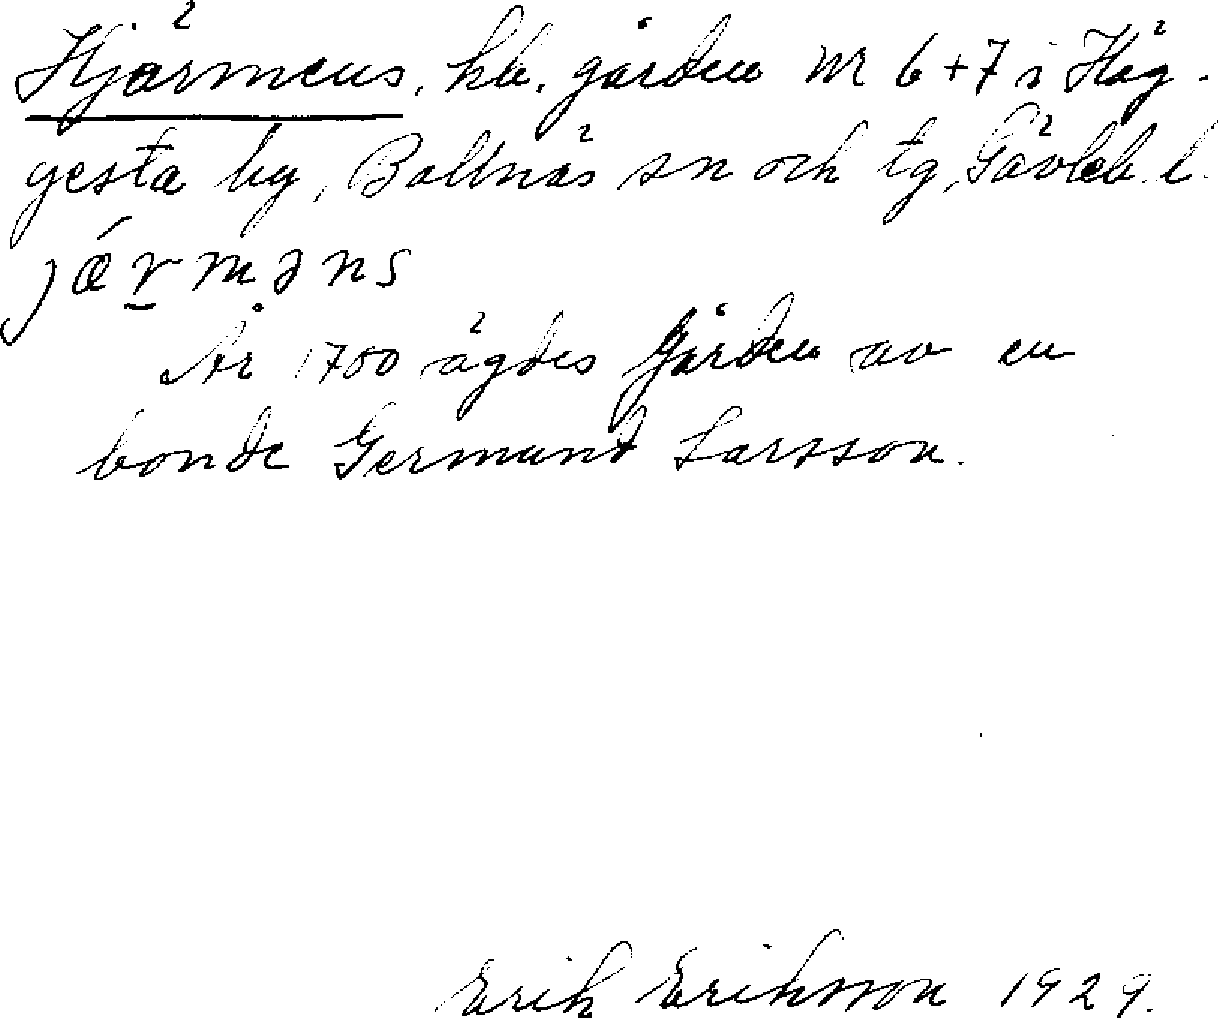 Hjärmens, hb. gården nr 6+7 i Häg-
gesta by, Bollnäs sn och tg, Gävleb. l.
jǽr̲mə̥ns
År 1700 ägdes gården av en
bonde Germund Larsson.
Erik Eriksson 1929.